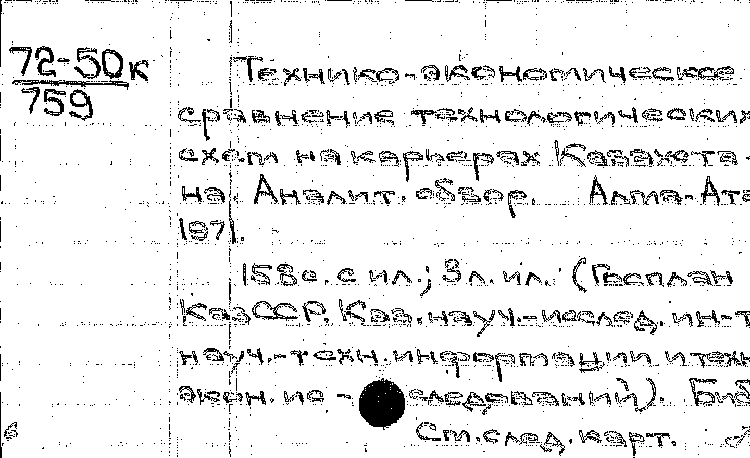 72-50к
759
Технико-экономическое
сравнение технологических
схем на карьерах Казахста-
на. Аналит. обзор. Алма-Ата
1971.
158 с. с ил.; 3 л. ил. (Госплан
КазССР. Каз. науч.-исслед. ин-т
науч.-техн. информации и техн
экон. ис - следований). Биб
См. след. карт.